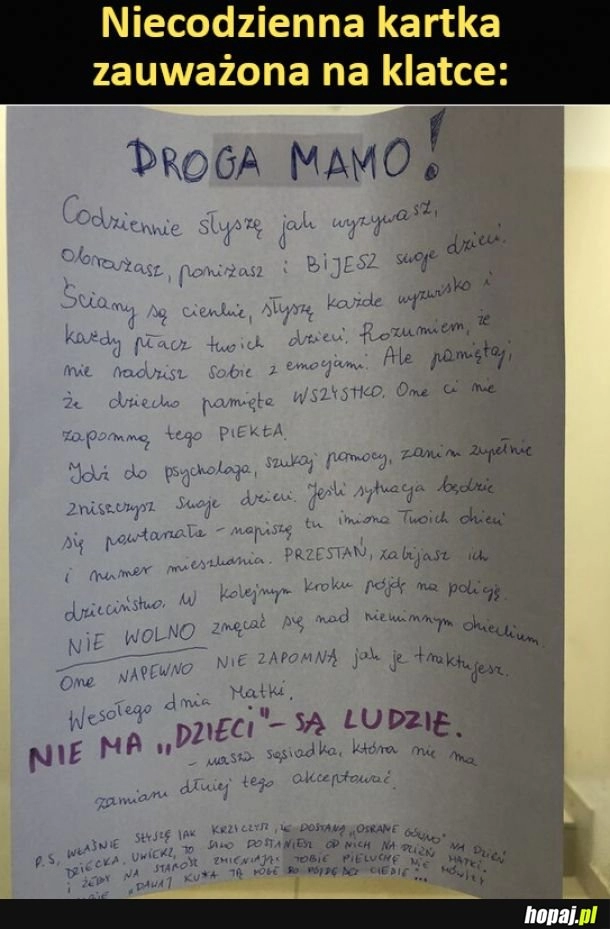 Niecodzienna kartka
zauważona na klatce:
DROGA MAMO!
Codziennie słyszę jak wyzywasz,
obrażasz, poniżasz i BIJESZ swoje dzieci.
Ściany są cienkie, słyszę każde wyzwisko i
każdy płacz twoich dzieci. Rozumiem, że
nie radzisz sobie z emocjami. Ale pamiętaj,
że dziecko pamięta WSZYSTKO. One ci nie
zapomną tego PIEKŁA.
Idź do psychologa, szukaj pomocy, zanim zupełnie
zniszczysz swoje dzieci. Jeśli sytuacja będzie
się powtarzała - napiszę tu imiona Twoich dzieci
i numer mieszkania. PRZESTAŃ, zabijasz ich
dzieciństwo. W kolejnym kroku pójdę na policję.
NIE WOLNO znęcać się nad niewinnym dzieckiem.
One NAPEWNO NIE ZAPOMNĄ jak je traktujesz.
Wesołego dnia Matki.
NIE MA „DZIECI" - SĄ LUDZIE.
- wasza sąsiadka, która nie ma
zamiaru dłużej tego akceptować.
P.S. WŁAŚNIE SŁYSZĘ JAK KRZYCZYSZ, ŻE DOSTANĄ „OSRANE GÓWNO" NA DZIEŃ
DZIECKA. UWIERZ, TO SAMO DOSTANIESZ OD NICH NA DZIEŃ MATKI.
I ŻEBY NA STAROŚĆ ZMIENIAJĄC TOBIE PIELUCHĘ NIE MÓWILI
„DAWAJ KU*A TĄ NOGĘ BO PÓJDĘ BEZ CIEBIE"...
hopaj.pl